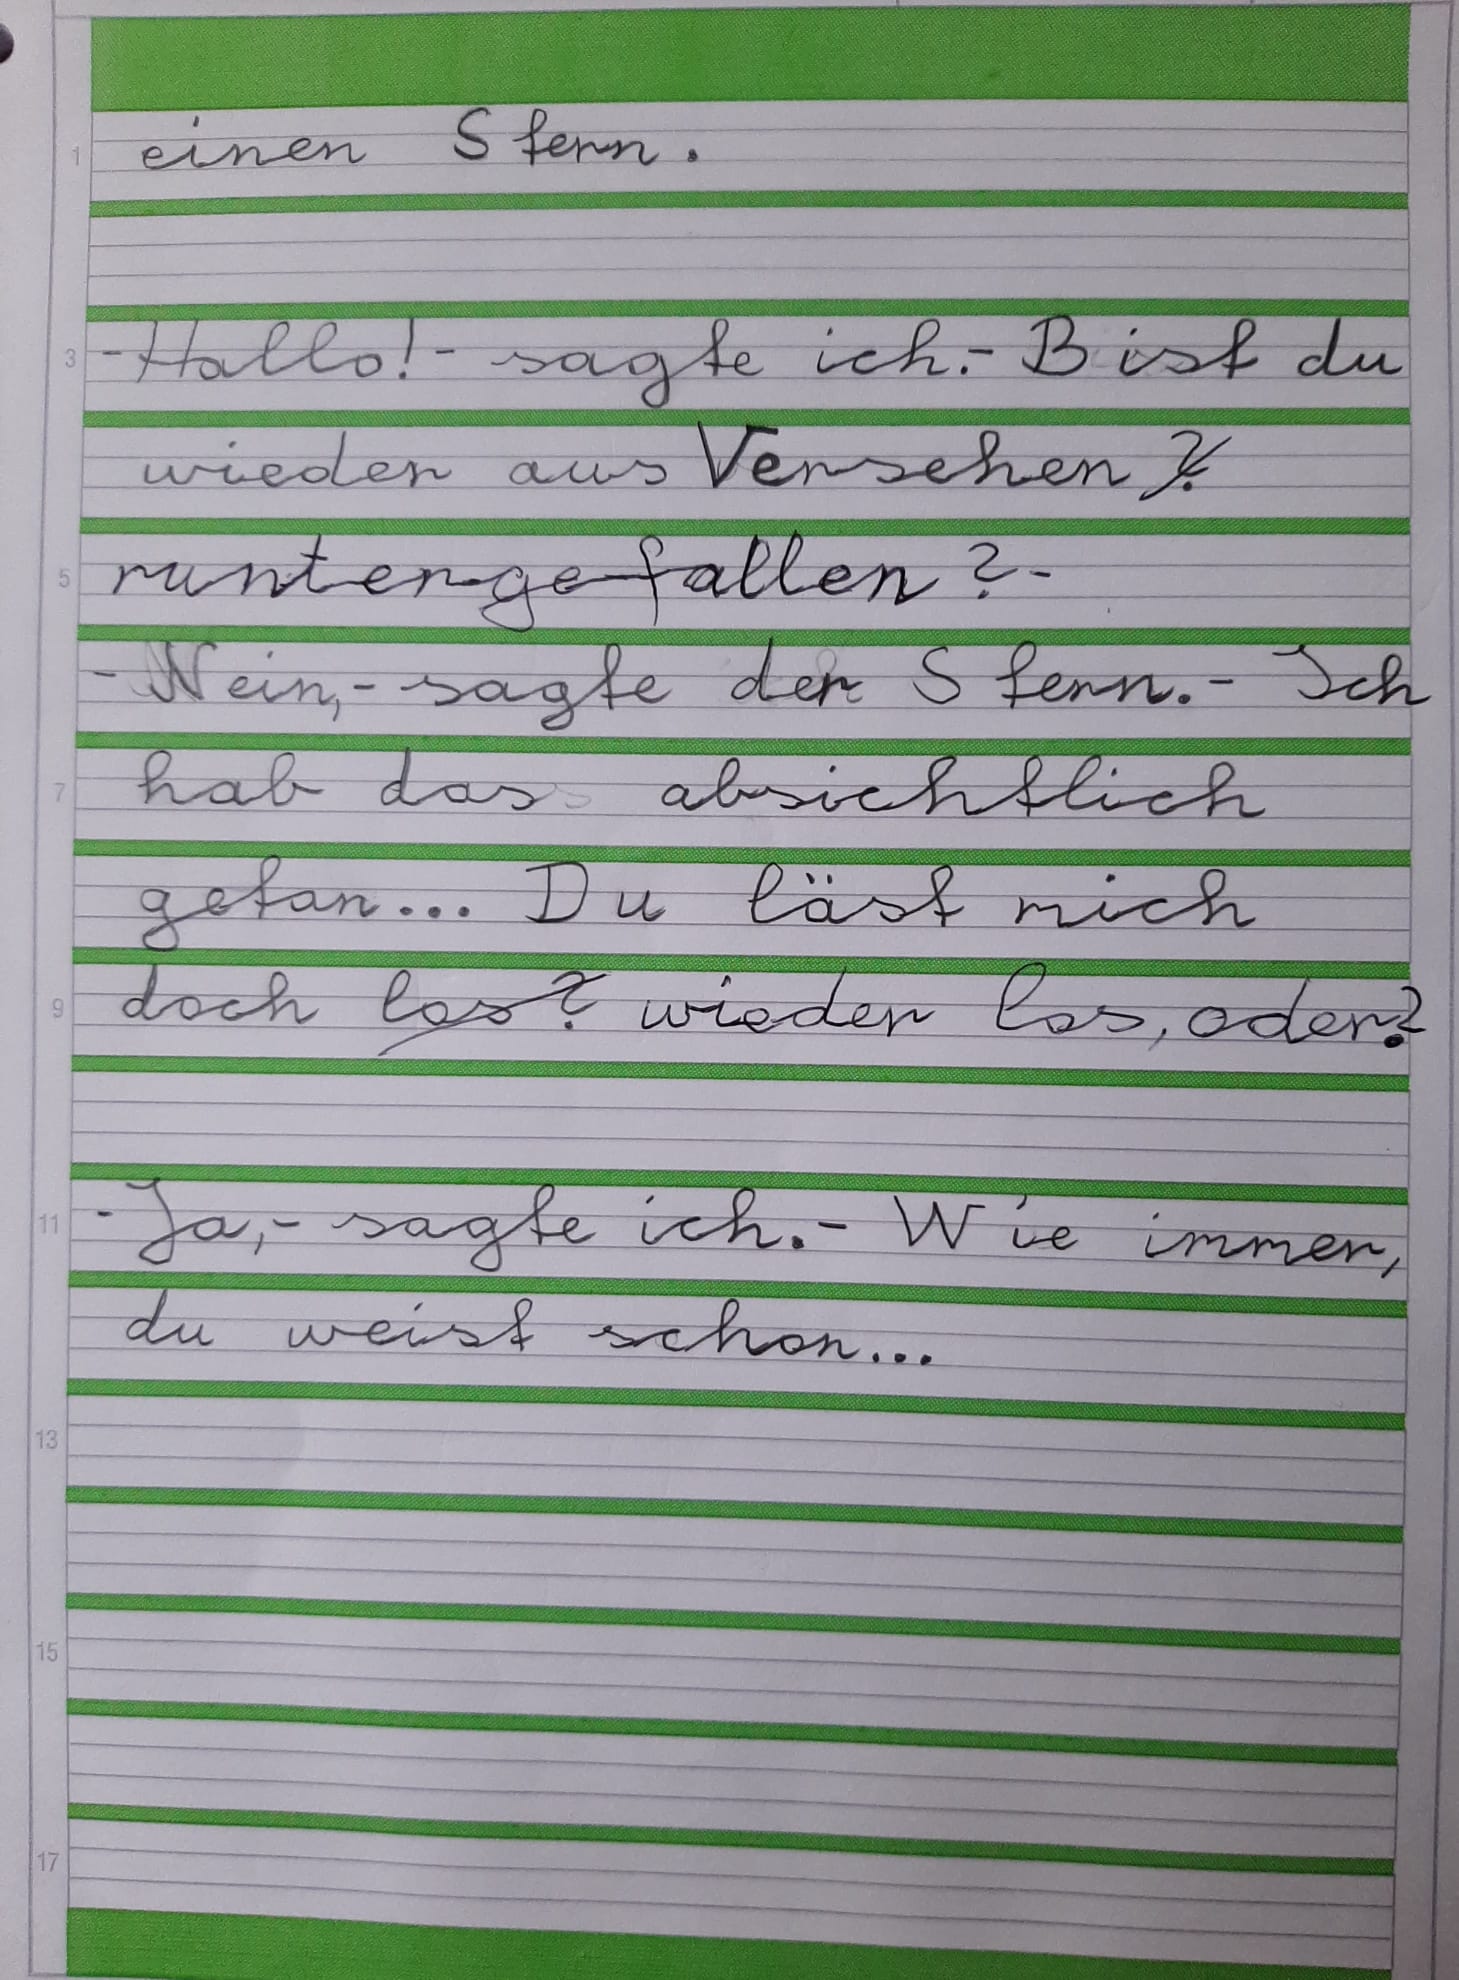 einen Stern.
-Hallo!- sagte ich.- Bist du
wieder aus Versehen?
runtergefallen?-
-Nein,- sagte der Stern.- Ich
hab das absichtlich
getan... Du läst mich
doch los? wieder los, oder?
-Ja,- sagte ich.- Wie immer,
du weist schon...
1
3
5
7
9
11
13
15
17